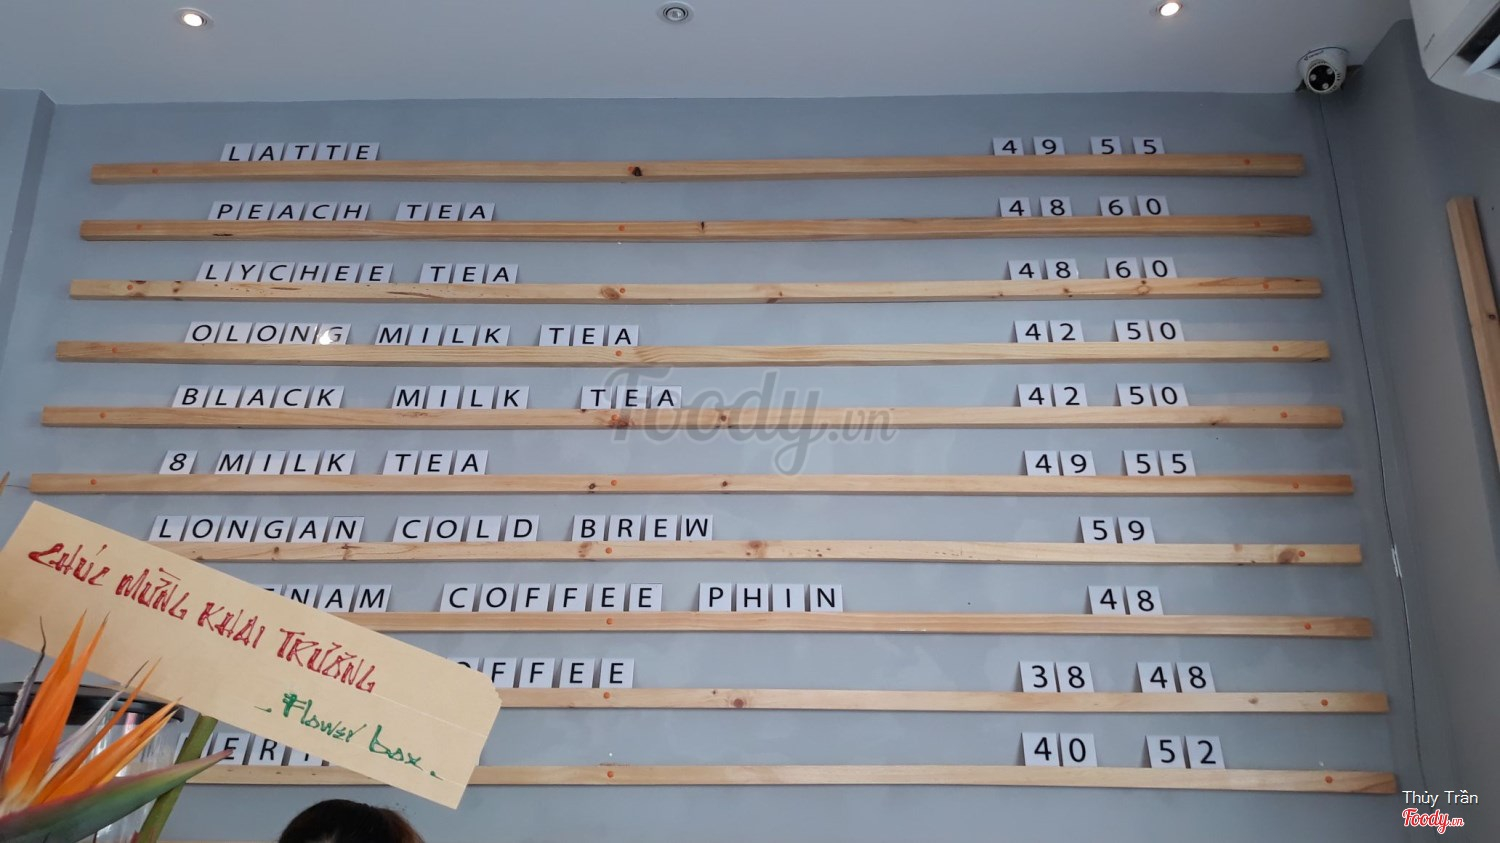 LATTE 49 55
PEACH TEA 48 60
LYCHEE TEA 48 60
OLONG MILK TEA 42 50
BLACK MILK TEA 42 50
8 MILK TEA 49 55
LONGAN COLD BREW 59
NAM COFFEE PHIN 48
FFEE 38 48
ER 40 52
CHÚC MỪNG KHAI TRƯƠNG
- Flower box.
Foody.vn
Thủy Trần
Foody.vn